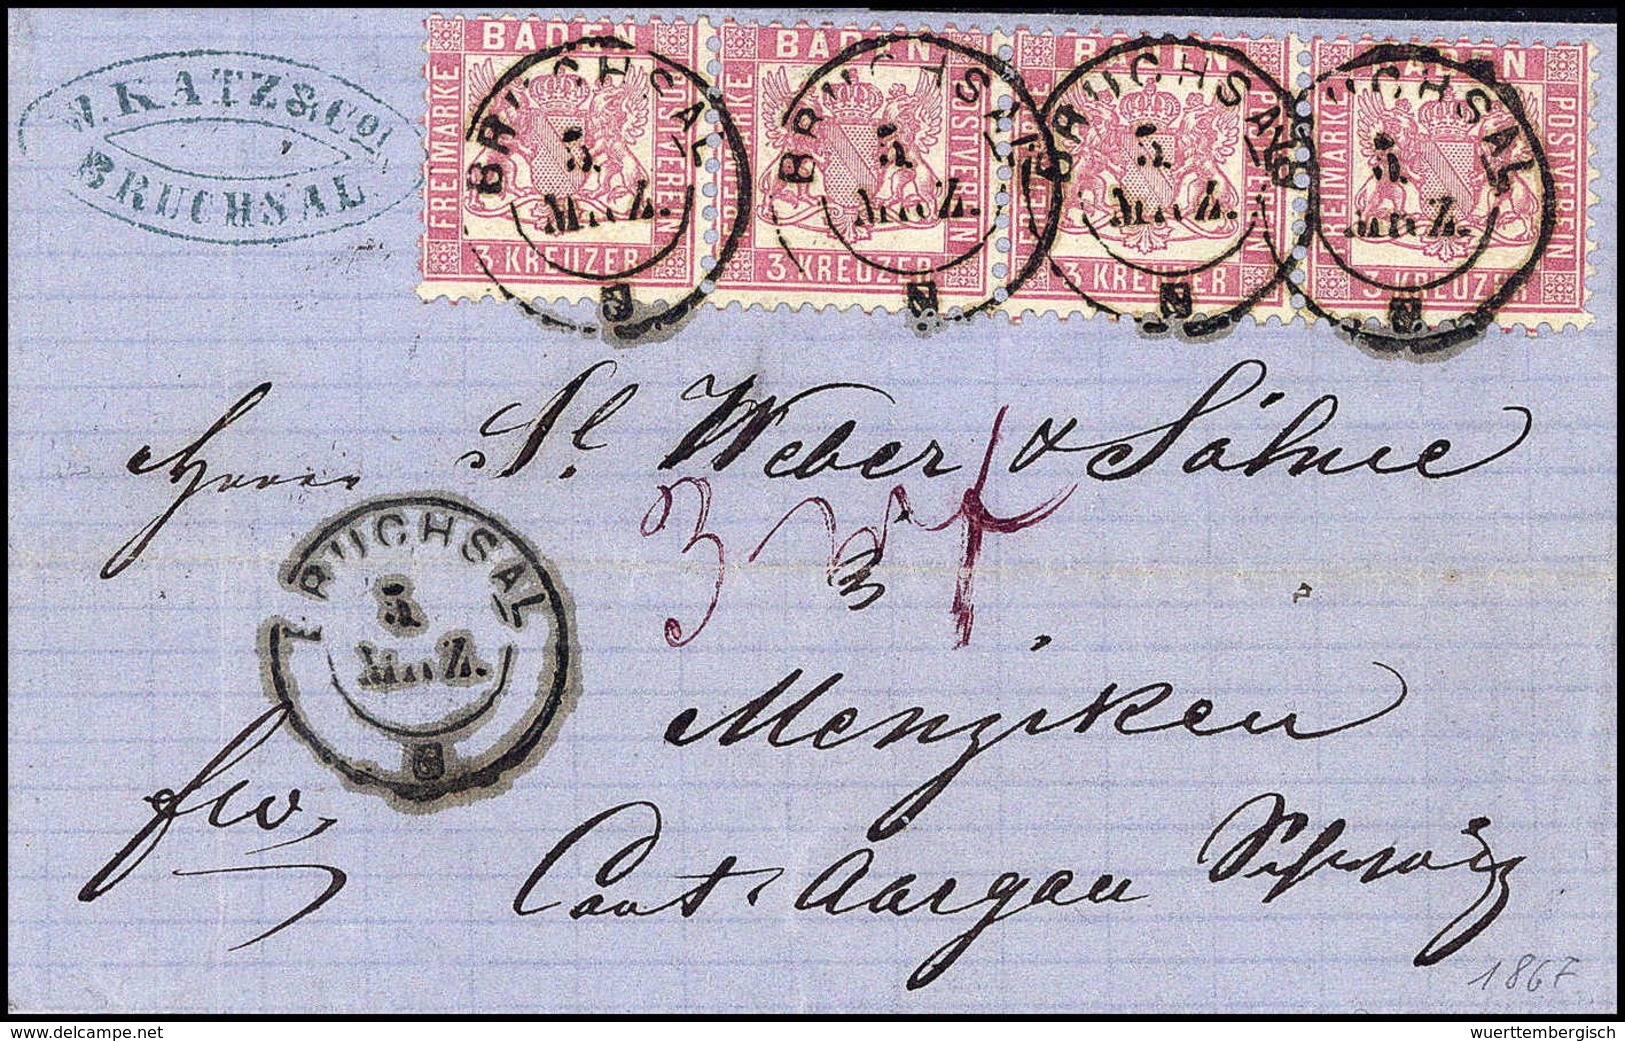 W. KATZ & Co.
BRUCHSAL.
BADEN
FREIMARKE
POSTVEREIN
3 KREUZER
BADEN
FREIMARKE
POSTVEREIN
3 KREUZER
BADEN
FREIMARKE
POSTVEREIN
3 KREUZER
BADEN
FREIMARKE
POSTVEREIN
3 KREUZER
BRUCHSAL
5.
MærZ.
BRUCHSAL
5.
MærZ.
BRUCHSAL
5.
MærZ.
BRUCHSAL
5.
MærZ.
Herren Sl. Weber & Söhne
3
BRUCHSAL
5.
MærZ.
Menziken
fco,
Cant. Aargau Schweiz
1867
©delcampe.net
wuerttembergisch